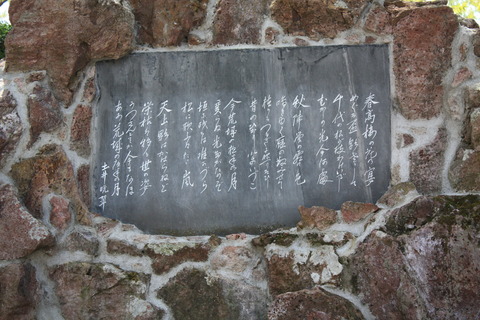 春高楼の花の宴
めぐる盃影さして
千代の松が枝わけいでし
むかしの光今何處
秋陣営の霜の色
鳴き行く雁の数見せて
植うるつるぎに照りそひし
昔の光今いづこ
今荒城の夜半の月
変らぬ光誰がためぞ
垣に残るは唯かづら
松に歌ふはただ嵐
天上影は替らねど
栄枯は移る世の姿
うつさんとてか今もなほ
あゝ荒城の夜半の月
土井晩翠